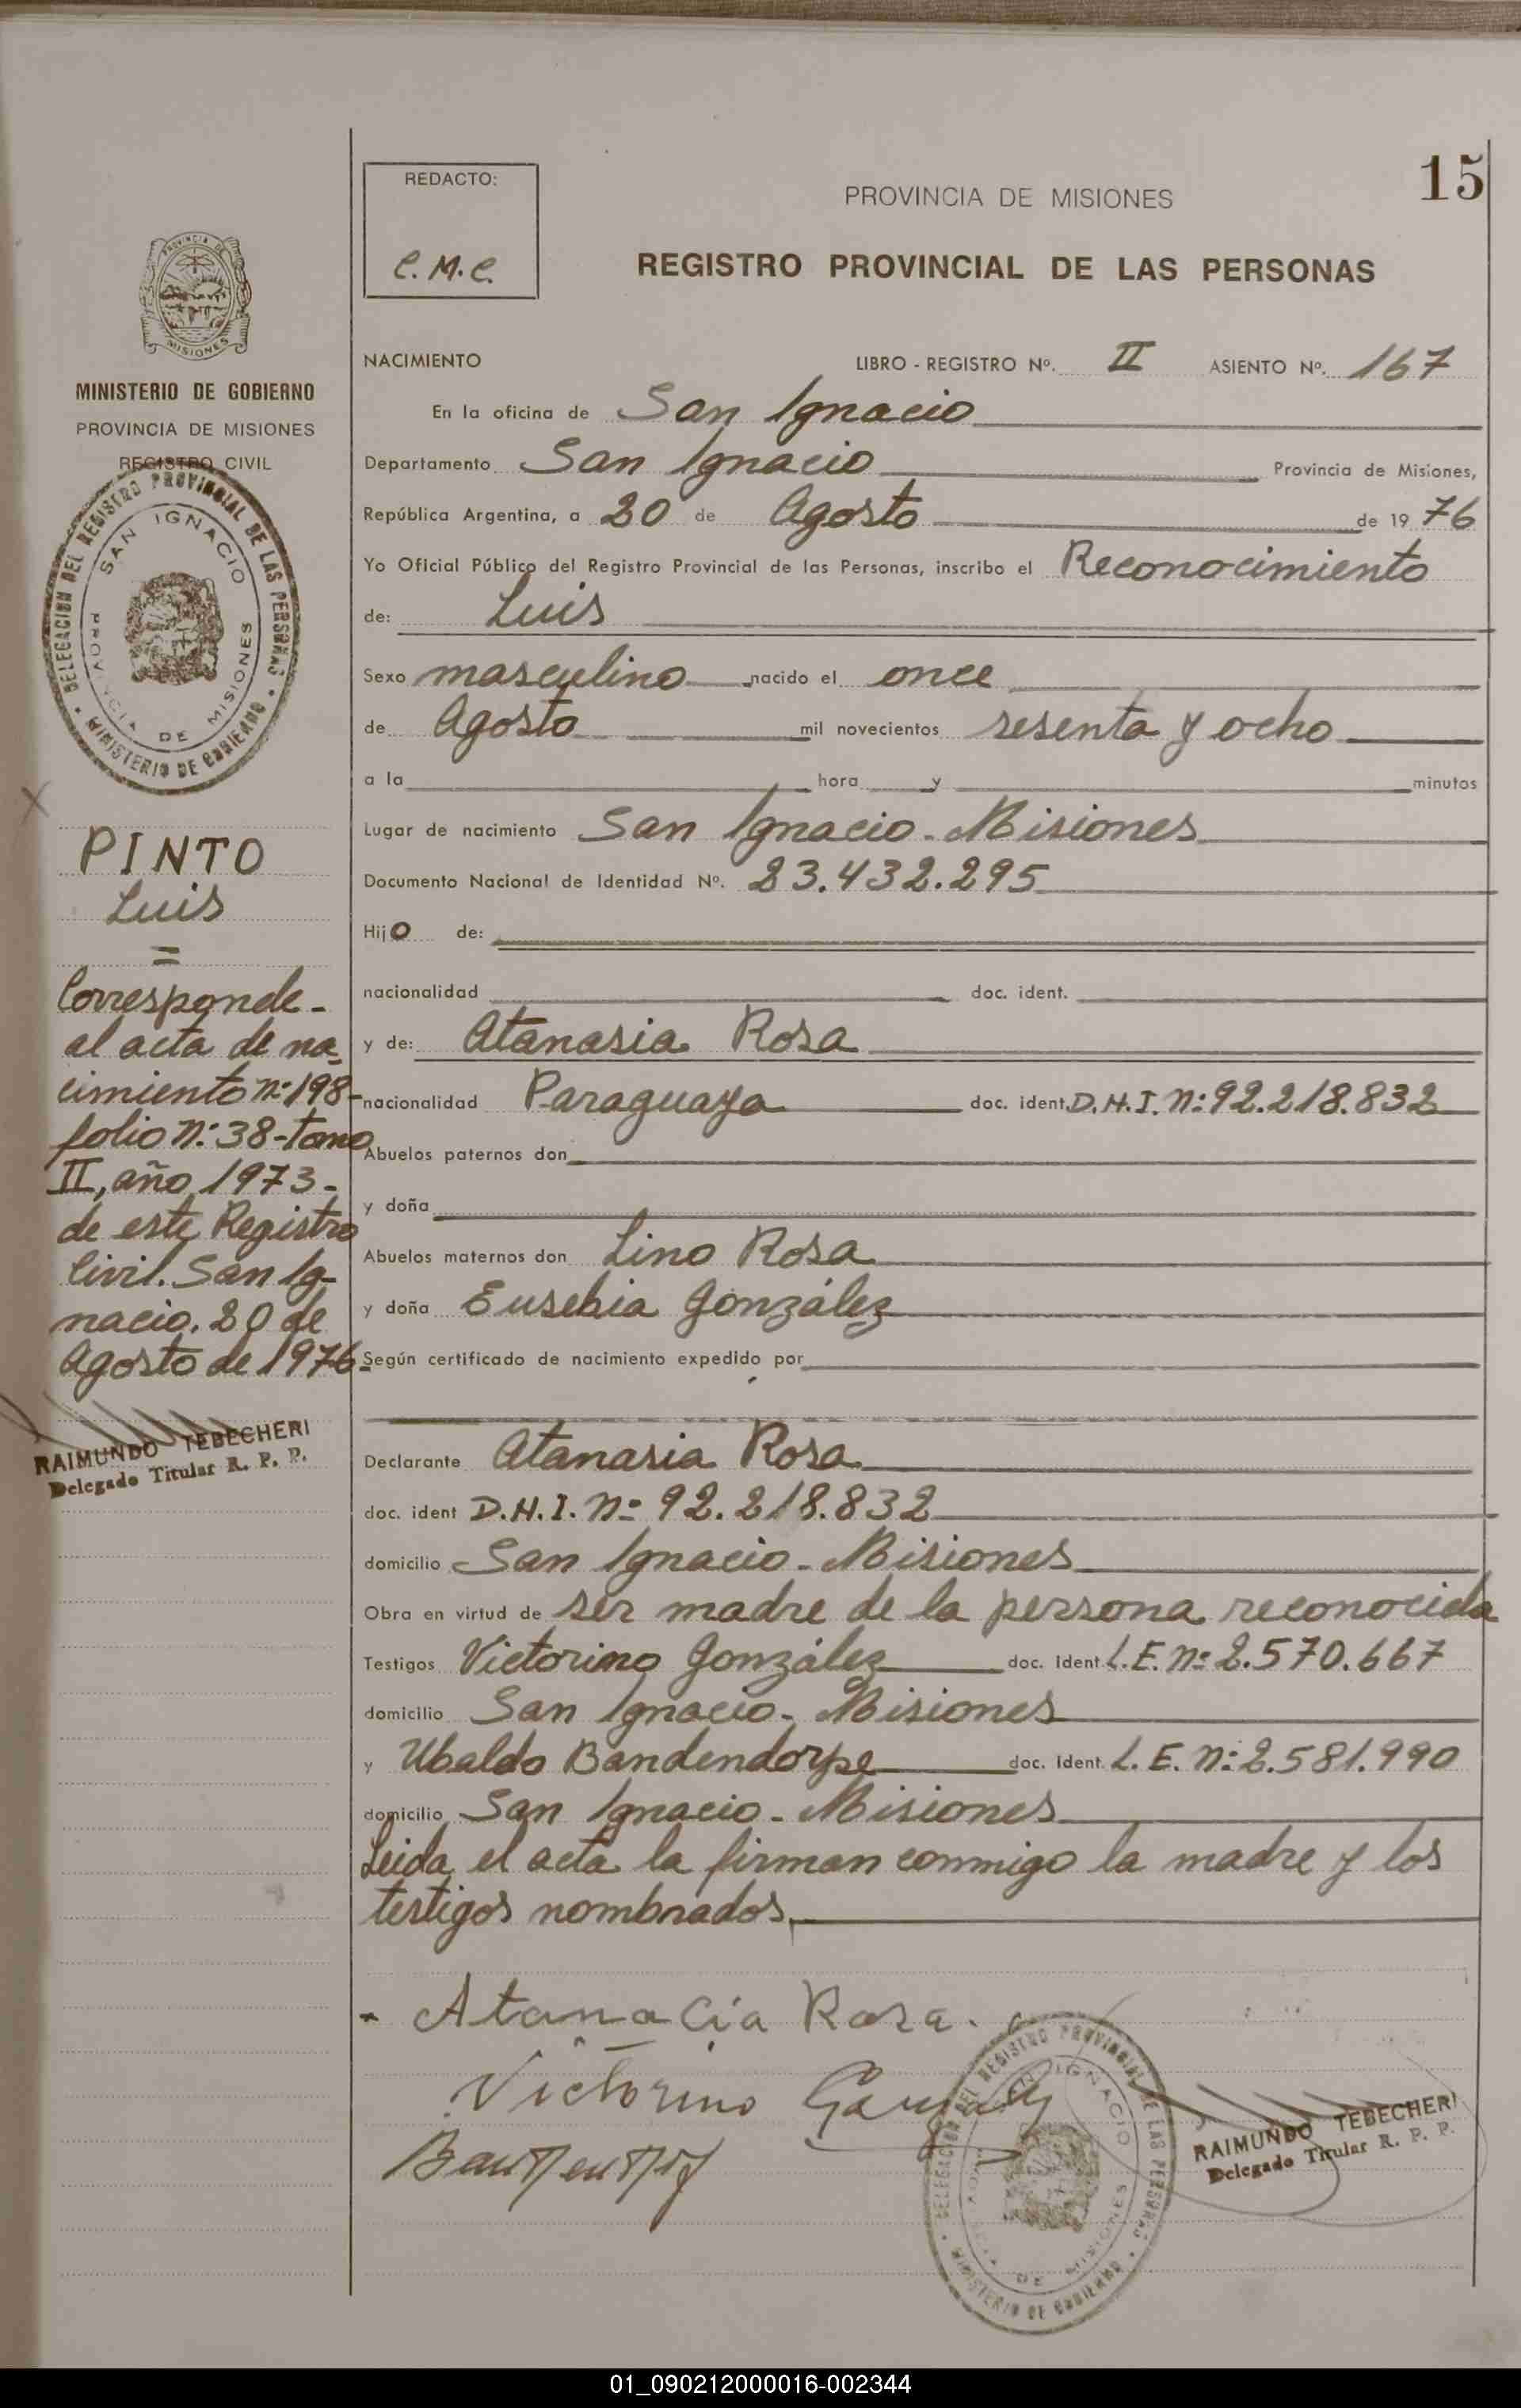 15
REDACTO:
C.M.C.
PROVINCIA DE MISIONES
REGISTRO PROVINCIAL DE LAS PERSONAS
PROVINCIA DE
MISIONES
MINISTERIO DE GOBIERNO
PROVINCIA DE MISIONES
REGISTRO CIVIL
DELEGACION DEL REGISTRO PROVINCIAL DE LAS PERSONAS
MINISTERIO DE GOBIERNO
SAN IGNACIO
PROVINCIA DE MISIONES
PINTO
Luis
=
Corresponde-
al acta de na-
cimiento nº 198-
folio Nº 38-tomo
II, año 1973-
de este Registro
Civil. San Ig-
nacio. 20 de
Agosto de 1976-
RAIMUNDO TEBECHERI
Delegado Titular R. P. P.
NACIMIENTO LIBRO - REGISTRO Nº. II ASIENTO Nº. 167
En la oficina de San Ignacio
Departamento San Ignacio Provincia de Misiones,
República Argentina, a 20 de Agosto de 1976
Yo Oficial Público del Registro Provincial de las Personas, inscribo el Reconocimiento
de: Luis
Sexo masculino nacido el once
de Agosto mil novecientos sesenta y ocho
a la hora y minutos
Lugar de nacimiento San Ignacio-Misiones
Documento Nacional de Identidad Nº. 23.432.295
Hijo de:
nacionalidad doc. ident.
y de: Atanasia Rosa
nacionalidad Paraguaya doc. ident. D.N.I. Nº 92.218.832
Abuelos paternos don
y doña
Abuelos maternos don Lino Rosa
y doña Eusebia González
Según certificado de nacimiento expedido por
Declarante Atanasia Rosa
doc. ident D.N.I. Nº 92.218.832
domicilio San Ignacio-Misiones
Obra en virtud de ser madre de la persona reconocida
Testigos Victorino González doc. ident. L.E. Nº 2.570.667
domicilio San Ignacio-Misiones
y Ubaldo Bandendorpe doc. Ident. L.E. Nº 2.581.990
domicilio San Ignacio-Misiones
Leida el acta la firman conmigo la madre y los
testigos nombrados,
Atanacia Rosa.
Victorino
DELEGACION DEL REGISTRO PROVINCIAL DE LAS PERSONAS
MINISTERIO DE GOBIERNO
SAN IGNACIO
PROVINCIA DE MISIONES
RAIMUNDO TEBECHERI
Delegado Titular R. P. P.
01_090212000016-002344